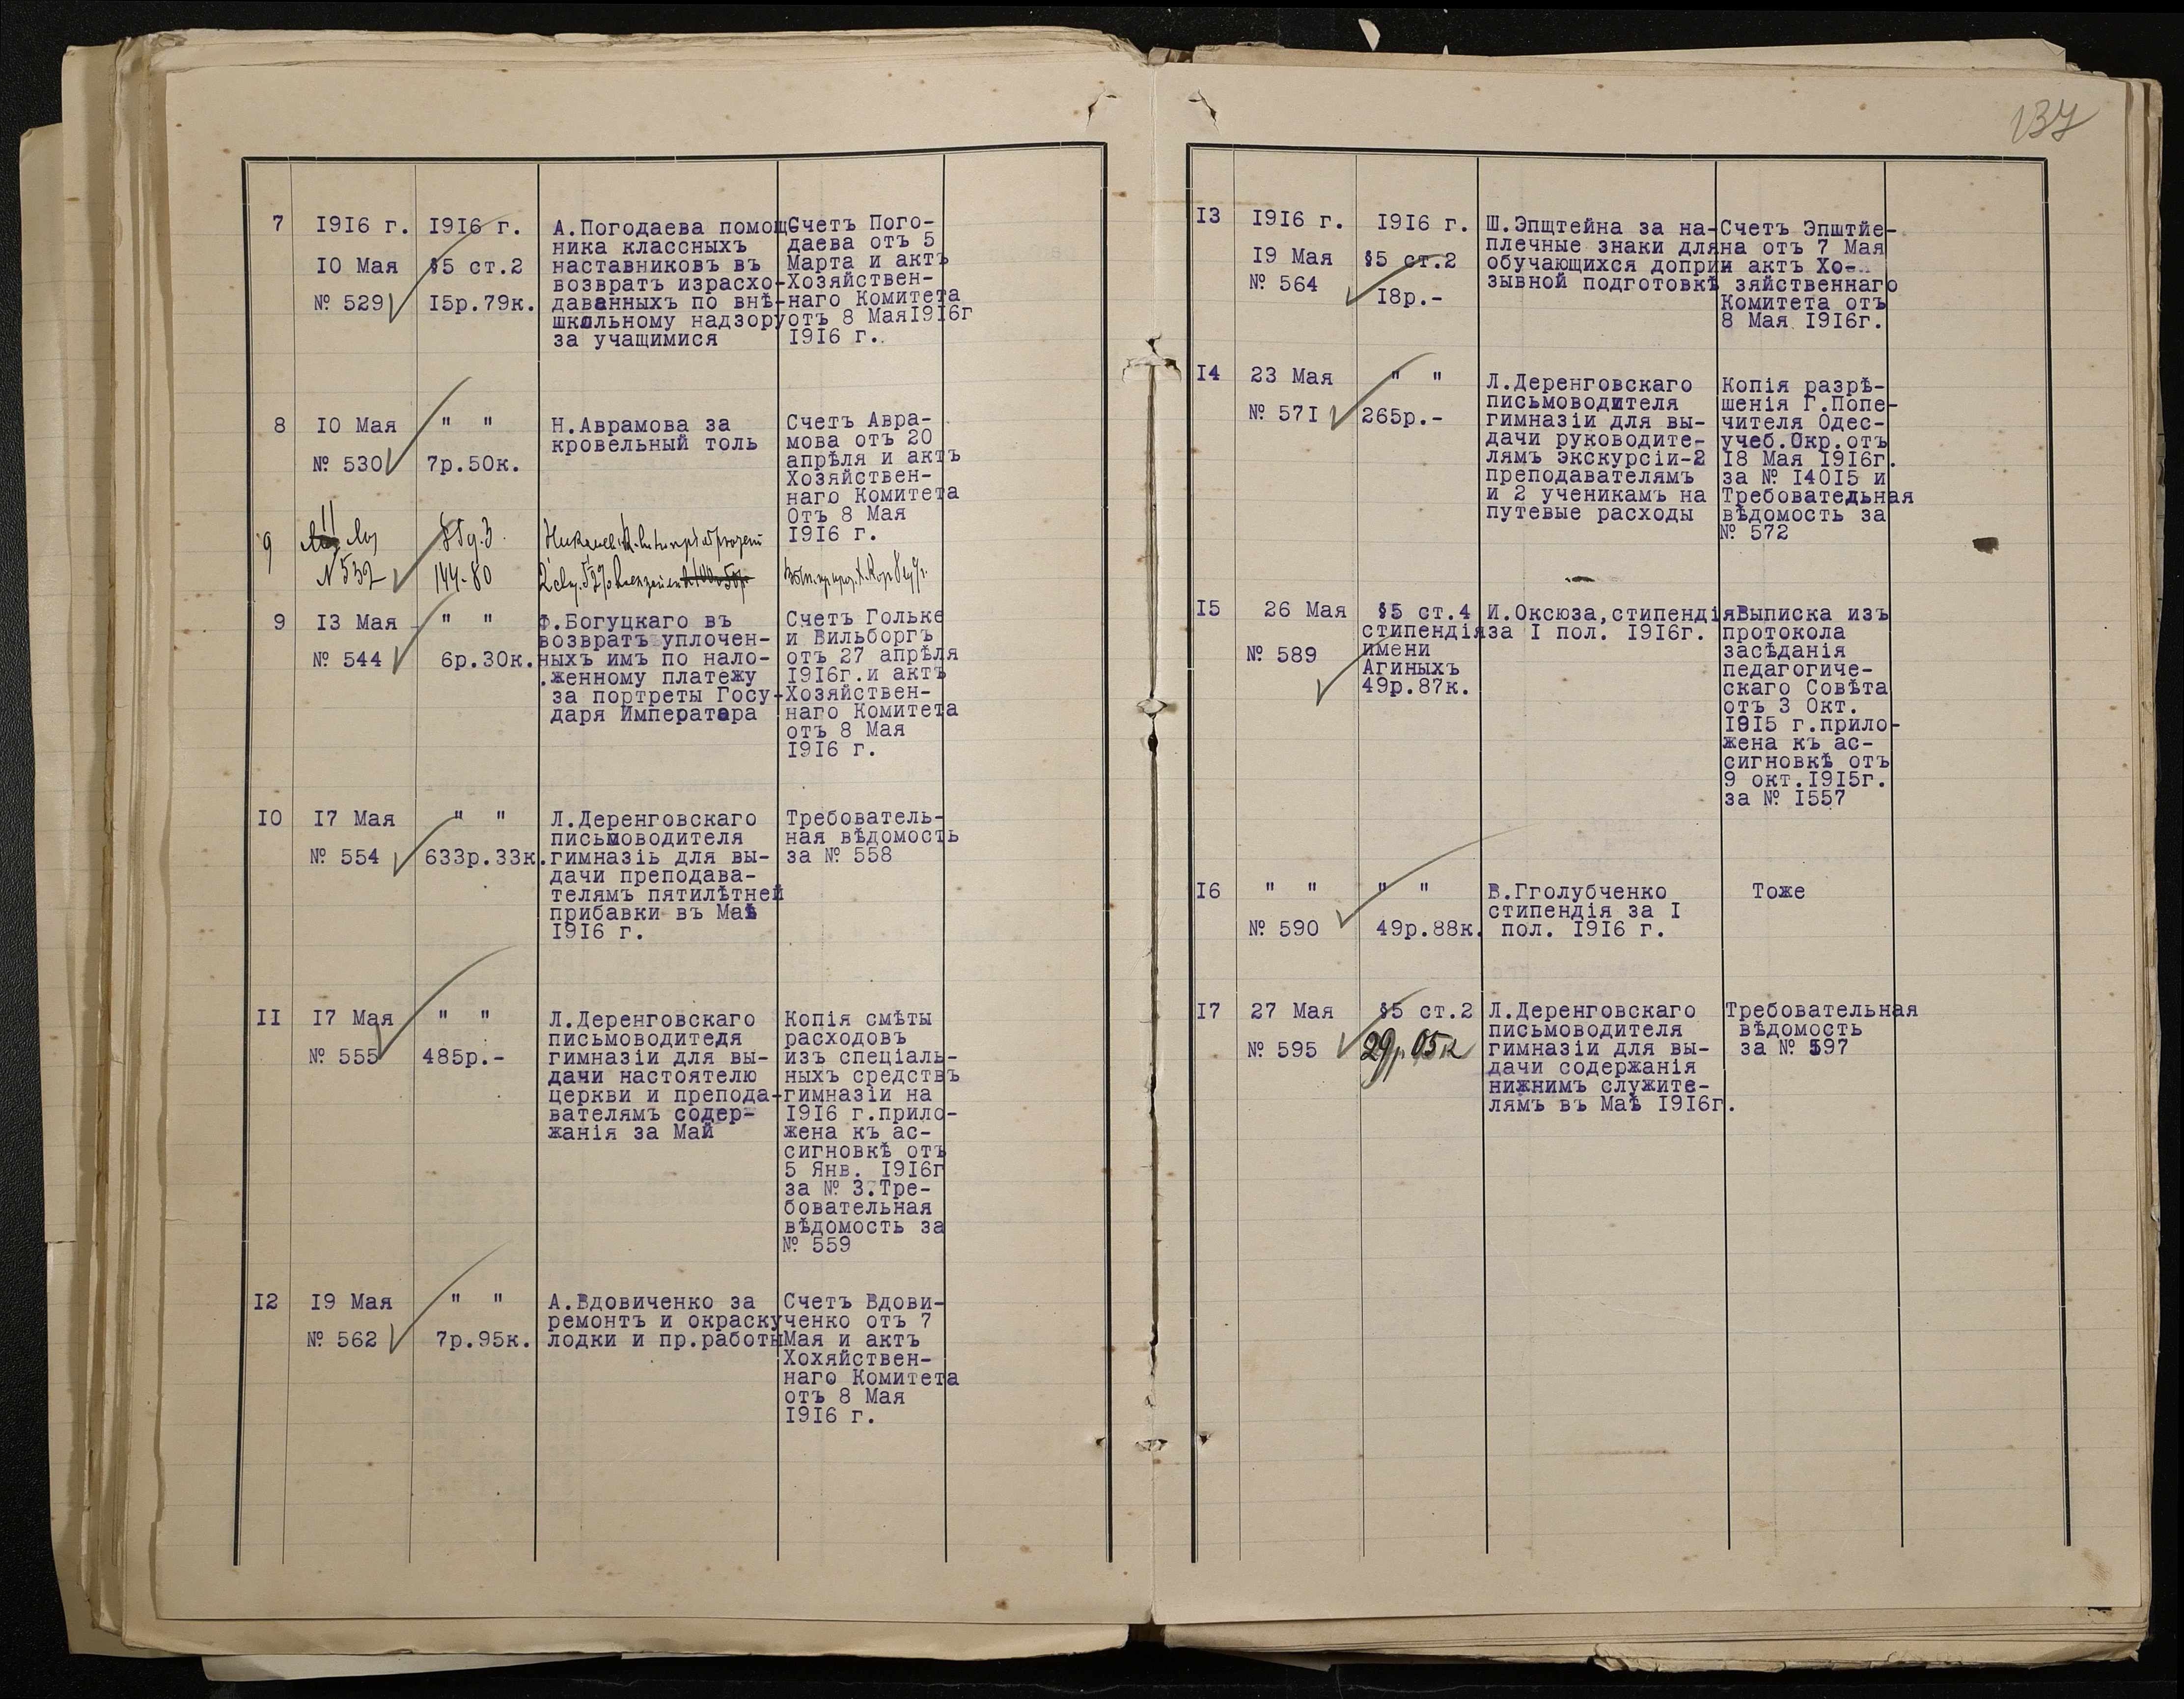 137
7
1916 г.
10 Мая
№ 529
1916 г.
§5 ст.2
15р.79к.
А.Погодаева помощ-
ника классныхъ
наставниковъ въ
возвратъ израсхо-
даванныхъ по внѣ-
школьному надзору
за учащимися
Счетъ Пого-
даева отъ 5
Марта и актъ
Хозяйствен-
наго Комитета
отъ 8 Мая1916г
1916 г.
8
10 Мая
№ 530
" "
7р.50к.
Н.Аврамова за
кровельный толь
Счетъ Авра-
мова отъ 20
апрѣля и актъ
Хозяйствен-
наго Комитета
Отъ 8 Мая
1916 г.
9
11
Мая
N 532
144-80
9
13 Мая
№ 544
" "
6р.30к.
Ф.Богуцкаго въ
возвратъ уплочен-
ныхъ имъ по нало-
.женному платежу
за портреты Госу-
даря Императора
Счетъ Гольке
и Вильборгъ
отъ 27 апрѣля
1916г.и актъ
Хозяйствен-
наго Комитета
отъ 8 Мая
1916 г.
10
17 Мая
№ 554
" "
633р.33к.
Л.Деренговскаго
письмоводителя
гимназіь для вы-
дачи преподава-
телямъ пятилѣтней
прибавки въ Маѣ
1916 г.
Требователь-
ная вѣдомость
за № 558
11
17 Мая
№ 555
" "
485р.-
Л.Деренговскаго
письмоводитедя
гимназіи для вы-
дачи настоятелю
церкви и препода-
вателямъ содер-
жанія за Май
Копія смѣты
расходовъ
изъ спеціаль-
ныхъ средствъ
гимназіи на
1916 г.прило-
жена къ ас-
сигновкѣ отъ
5 Янв. 1916г
за № 3.Тре-
бовательная
вѣдомость за
№ 559
12
19 Мая
№ 562
" "
7р.95к.
А.Вдовиченко за
ремонтъ и окраску
лодки и пр.работы
Счетъ Вдови-
ченко отъ 7
Мая и актъ
Хохяйствен-
наго Комитета
отъ 8 Мая
1916 г.
13
1916 г.
19 Мая
№ 564
1916 г.
§5 ст.2
18р.-
Ш.Эпщтейна за на-
плечные знаки для
обучающихся допри
зывной подготовкѣ
Счетъ Эпштйе-
на отъ 7 Мая
и актъ Хо-
зяйственнаго
Комитета отъ
8 Мая 1916г.
14
23 Мая
№ 571
" "
265р.-
Л.Деренговскаго
письмоводителя
гимназіи для вы-
дачи руководите-
лямъ экскурсіи-2
преподавателямъ
и 2 ученикамъ на
путевые расходы
Копія разрѣ-
шенія Г.Попе-
чителя Одес-
учеб.Окр.отъ
18 Мая 1916г.
за № 14015 и
Требовательная
вѣдомость за
№ 572
15
26 Мая
№ 589
§5 ст.4
стипендія
имени
Агиныхъ
49р.87к.
И.Оксюза,стипендія
за I пол. 1916г.
Выписка изъ
протокола
засѣданія
педагогиче-
скаго Совѣта
отъ 3 Окт.
1915 г.прило-
жена къ ас-
сигновкѣ отъ
9 окт.1915г.
за № 1557
16
" "
№ 590
" "
49р.88к.
В.Гголубченко
стипендія за I
пол. 1916 г.
Тоже
17
27 Мая
№ 595
§5 ст.2
29р 05к
Л.Деренговскаго
письмоводителя
гимназіи для вы-
дачи содержанія
нижнимъ служите-
лямъ въ Маѣ 1916г.
Требовательная
вѣдомость
за № 597